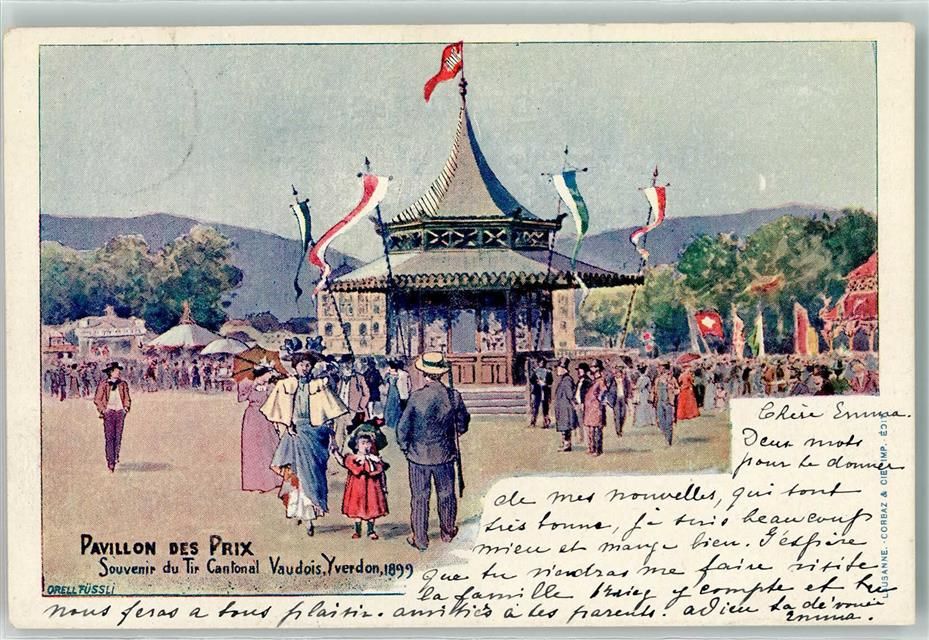 PAVILLON DES PRIX
Souvenir du Tir Cantonal Vaudois, Yverdon, 1899
ORELL FÜSSLI
LAUSANNE. - CORBAZ & CIE IMP. - ÉDIT
Chère Emma.
Deux mots
pour te donner
de mes nouvelles, qui sont
très bonne, je suis beaucoup
mieu et mange bien. J'espère
que tu viendras me faire visite
la famille y compte et tu
nous feras a tous plaisir. amitiés à tes parents. adieu ta dévouée
Emma.